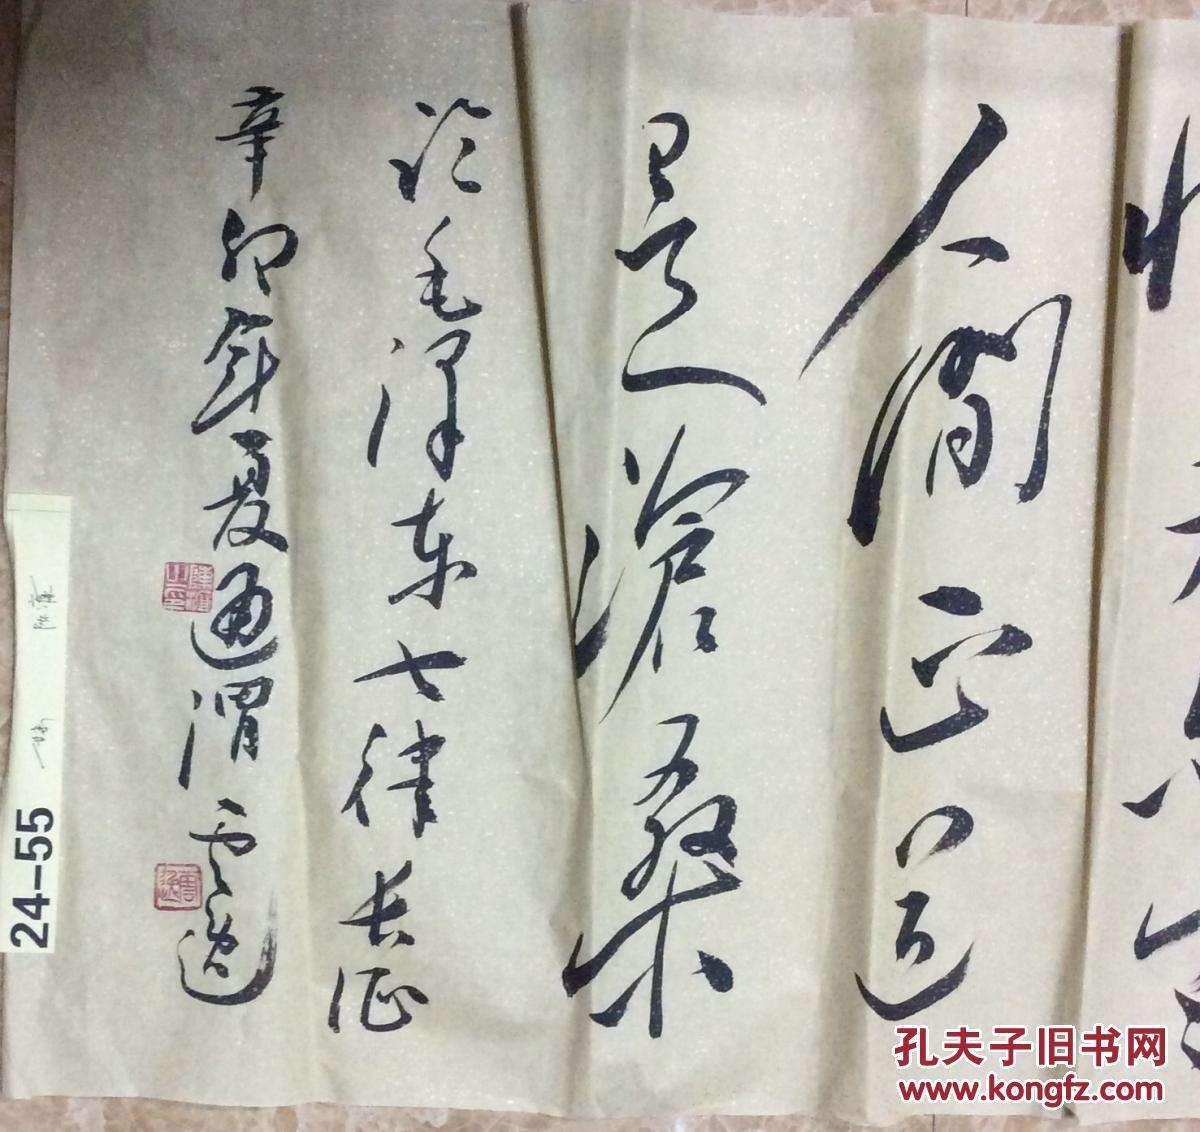 人间正道
是沧桑
论毛泽东七律长征
辛卯年夏通渭云逸
24-55
孔夫子旧书网
www.kongfz.com